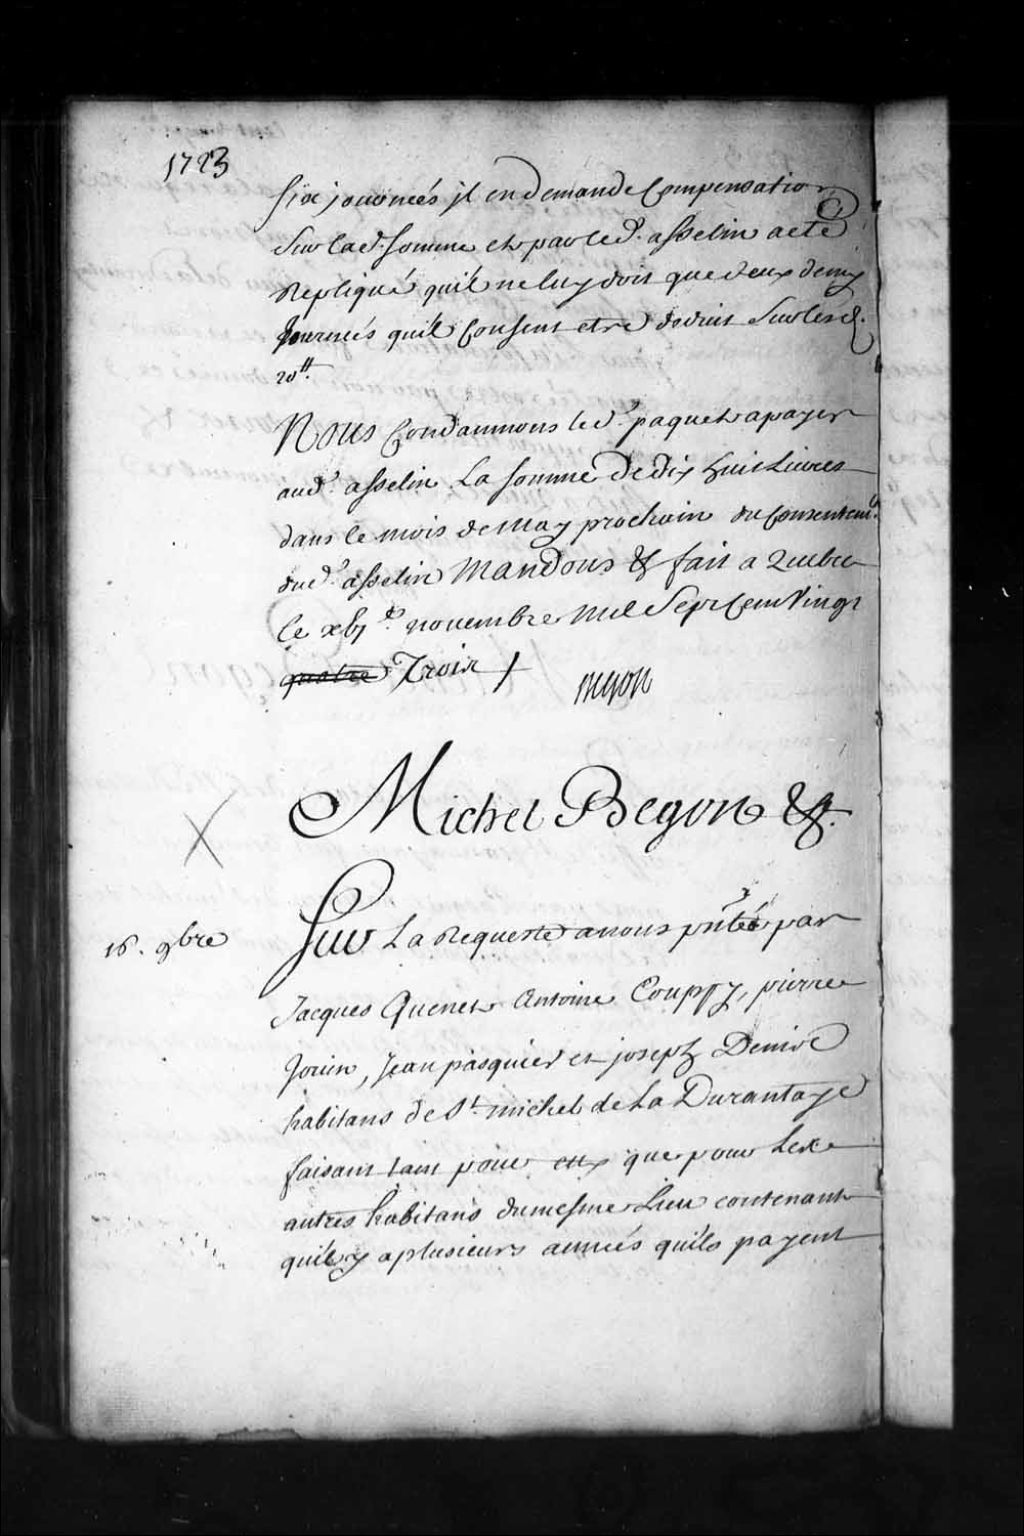 1723
six journées jl en demande Compensation
Sur lad. somme et par led. asselin a eté
Repliqué quil ne luy doit que deux demy
Journées quil Consent etre deduit Sur lesd.
20ᵗᵗ.
Nous Condamnons led. paquet a payer
aud. asselin La somme de dix huit Livres
dans le mois de may prochain du Consentemt.
dud. asselin Mandons &c fait a Quebec
le xbje. novembre mil Sept Cent Vingt
quatre Trois
Begon
Michel Begon &c.
16. 9bre
Sur La Requeste a nous pntée par
Jacques Quenet Antoine Couppy, pierre
Joüin, Jean pasquier et joseph Denis
habitans de St. michel de La Durantaye
faisant tant pour eux que pour Les
autres habitans du mesme Lieu contenant
quil y a plusieurs années quils payent